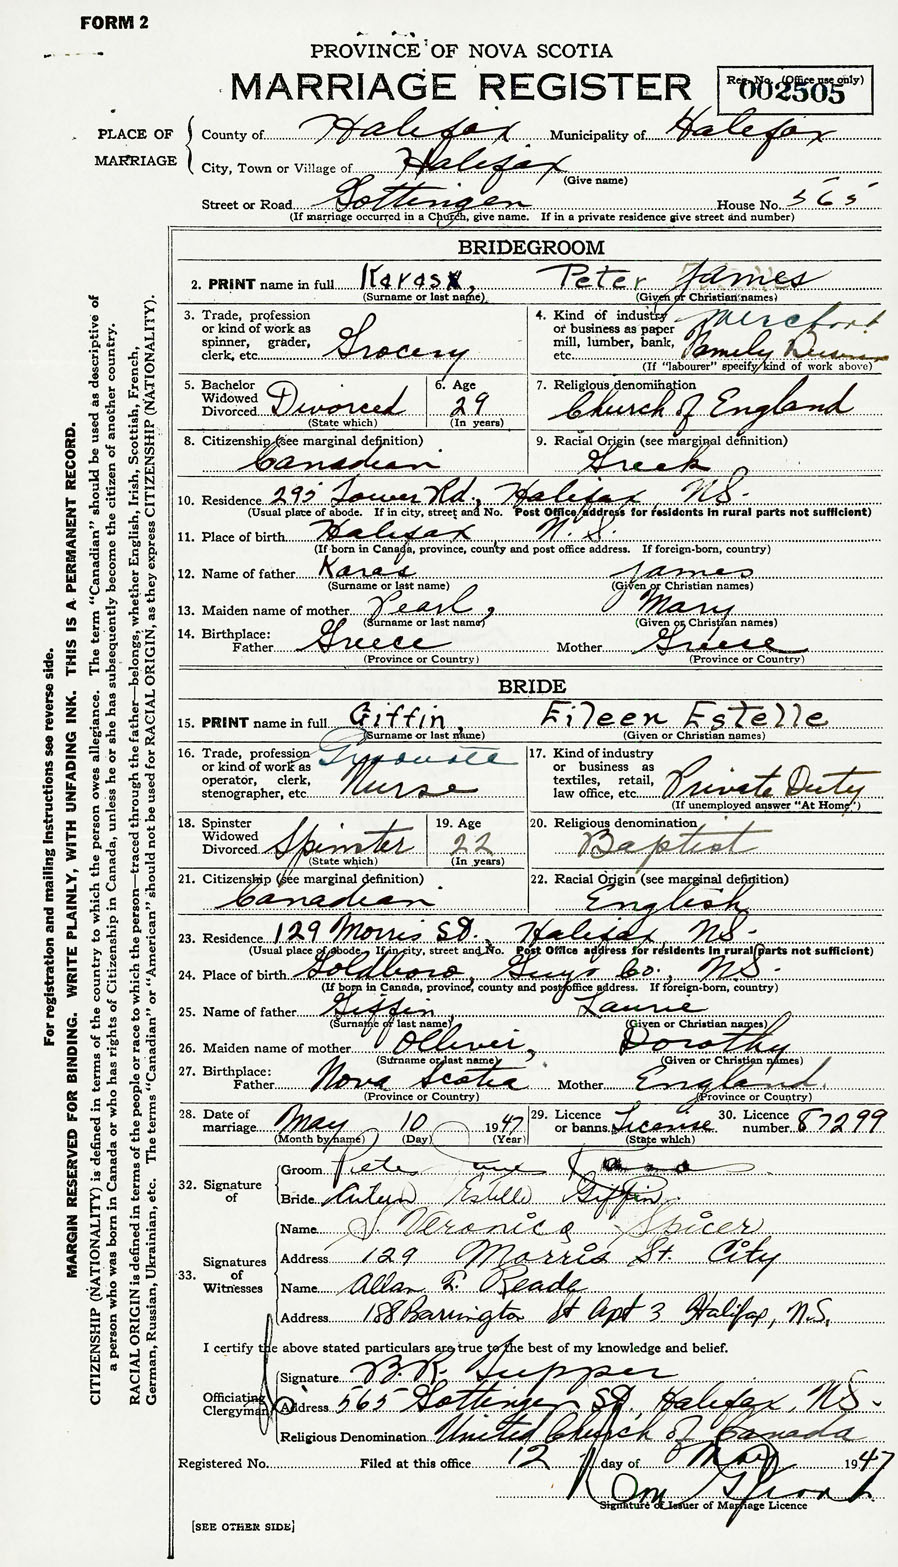 FORM 2
PROVINCE OF NOVA SCOTIA
MARRIAGE REGISTER
Reg. No. (Office use only)
002505
PLACE OF MARRIAGE
County of Halifax Municipality of Halifax
City, Town or Village of Halifax
(Give name)
Street or Road Gottingen House No. 565
(If marriage occurred in a Church, give name. If in a private residence give street and number)
BRIDEGROOM
2. PRINT name in full Karas, Peter James
(Surname or last name) (Given or Christian names)
3. Trade, profession or kind of work as spinner, grader, clerk, etc. Grocery
4. Kind of industry or business as paper mill, lumber, bank, etc. Merchant Family
(If "labourer" specify kind of work above)
5. Bachelor Widowed Divorced Divorced
(State which)
6. Age 29
(In years)
7. Religious denomination
Church of England
8. Citizenship (see marginal definition)
Canadian
9. Racial Origin (see marginal definition)
Greek
10. Residence 295 Tower Rd., Halifax, NS.
(Usual place of abode. If in city, street and No. Post Office address for residents in rural parts not sufficient)
11. Place of birth Halifax N. S.
(If born in Canada, province, county and post office address. If foreign-born, country)
12. Name of father Karas James
(Surname or last name) (Given or Christian names)
13. Maiden name of mother Pearl, Mary
(Surname or last name) (Given or Christian names)
14. Birthplace:
Father Greece Mother Greece
(Province or Country) (Province or Country)
BRIDE
15. PRINT name in full Giffin, Eileen Estelle
(Surname or last name) (Given or Christian names)
16. Trade, profession or kind of work as operator, clerk, stenographer, etc. Graduate Nurse
17. Kind of industry or business as textiles, retail, law office, etc. Private Duty
(If unemployed answer "At Home")
18. Spinster Widowed Divorced Spinster
(State which)
19. Age 22
(In years)
20. Religious denomination
Baptist
21. Citizenship (see marginal definition)
Canadian
22. Racial Origin (see marginal definition)
English
23. Residence 129 Morris St., Halifax NS.
(Usual place of abode. If in city, street and No. Post Office address for residents in rural parts not sufficient)
24. Place of birth Goldboro, Guys Co., NS.
(If born in Canada, province, county and post office address. If foreign-born, country)
25. Name of father Giffin, Laurie
(Surname or last name) (Given or Christian names)
26. Maiden name of mother Olliver, Dorothy
(Surname or last name) (Given or Christian names)
27. Birthplace:
Father Nova Scotia Mother England.
(Province or Country) (Province or Country)
28. Date of marriage May 10 1947
(Month by name) (Day) (Year)
29. Licence or banns License
(State which)
30. Licence number 87299
32. Signature of
Groom Peter James Karas
Bride Estelle Giffin.
33. Signatures of Witnesses
Name S. Veronica Spicer
Address 129 Morris St. City
Name Allan E. Reade
Address 188 Barrington St Apt 3 Halifax, N.S.
I certify the above stated particulars are true to the best of my knowledge and belief.
Officiating Clergyman
Signature B.R. Tupper
Address 565 Gottingen St. Halifax, NS.
Religious Denomination United Church of Canada
Registered No. Filed at this office 12 day of May 1947
Signature of Issuer of Marriage Licence
[SEE OTHER SIDE]
For registration and mailing instructions see reverse side.
MARGIN RESERVED FOR BINDING. WRITE PLAINLY, WITH UNFADING INK. THIS IS A PERMANENT RECORD.
CITIZENSHIP (NATIONALITY) is defined in terms of the country to which the person owes allegiance. The term "Canadian" should be used as descriptive of
a person who was born in Canada or who has rights of Citizenship in Canada, unless he or she has subsequently become the citizen of another country.
RACIAL ORIGIN is defined in terms of the people or race to which the person—traced through the father—belongs, whether English, Irish, Scottish, French,
German, Russian, Ukrainian, etc. The terms "Canadian" or "American" should not be used for RACIAL ORIGIN, as they express CITIZENSHIP (NATIONALITY).